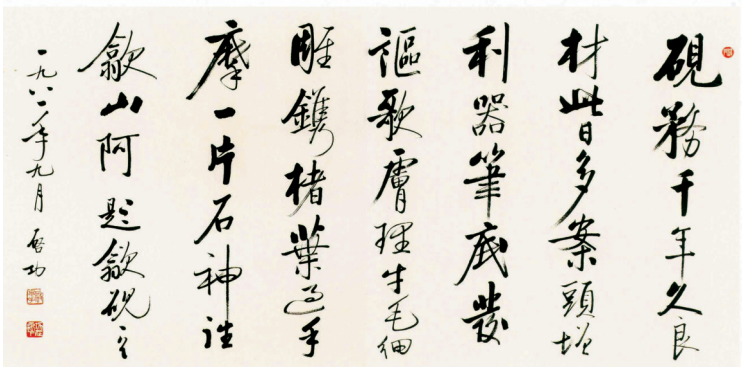 硯務千年久良
材此日多案頭增
利器筆底發
謳歌膚理牛毛細
雕鐫楮葉過手
摩一片石神往
歙山阿題歙硯
一九八二年九月 啓功